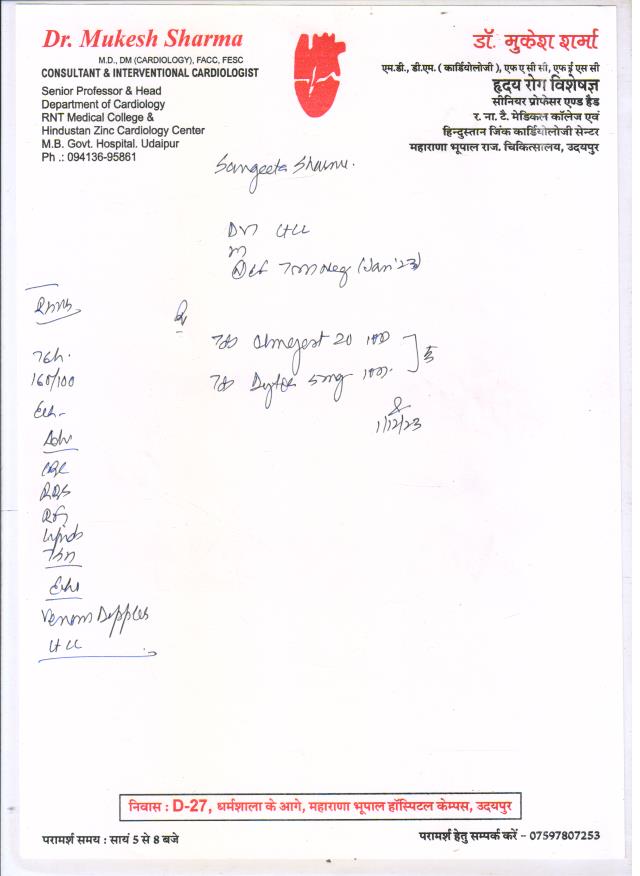 Dr. Mukesh Sharma
M.D., DM (CARDIOLOGY), FACC, FESC
CONSULTANT & INTERVENTIONAL CARDIOLOGIST
Senior Professor & Head
Department of Cardiology
RNT Medical College &
Hindustan Zinc Cardiology Center
M.B. Govt. Hospital. Udaipur
Ph .: 094136-95861
डॉ. मुकेश शर्मा
एम.डी., डी.एम. ( कार्डियोलोजी ), एफ ए सी सी, एफ ई एस सी
हृदय रोग विशेषज्ञ
सीनियर प्रोफेसर एण्ड हैड
र. ना. टै. मेडिकल कॉलेज एवं
हिन्दुस्तान जिंक कार्डियोलोजी सेन्टर
महाराणा भूपाल राज. चिकित्सालय, उदयपुर
Sangeeta Sharma.
DVT
(Jan'23)
76/.
160/100
20
5mg
1/12/23
Adv
CBC
RBS
RFT
Lipids
TSH
Echo
Venous Doppler
निवास : D-27, धर्मशाला के आगे, महाराणा भूपाल हॉस्पिटल केम्पस, उदयपुर
परामर्श समय : सायं 5 से 8 बजे
परामर्श हेतु सम्पर्क करें – 07597807253